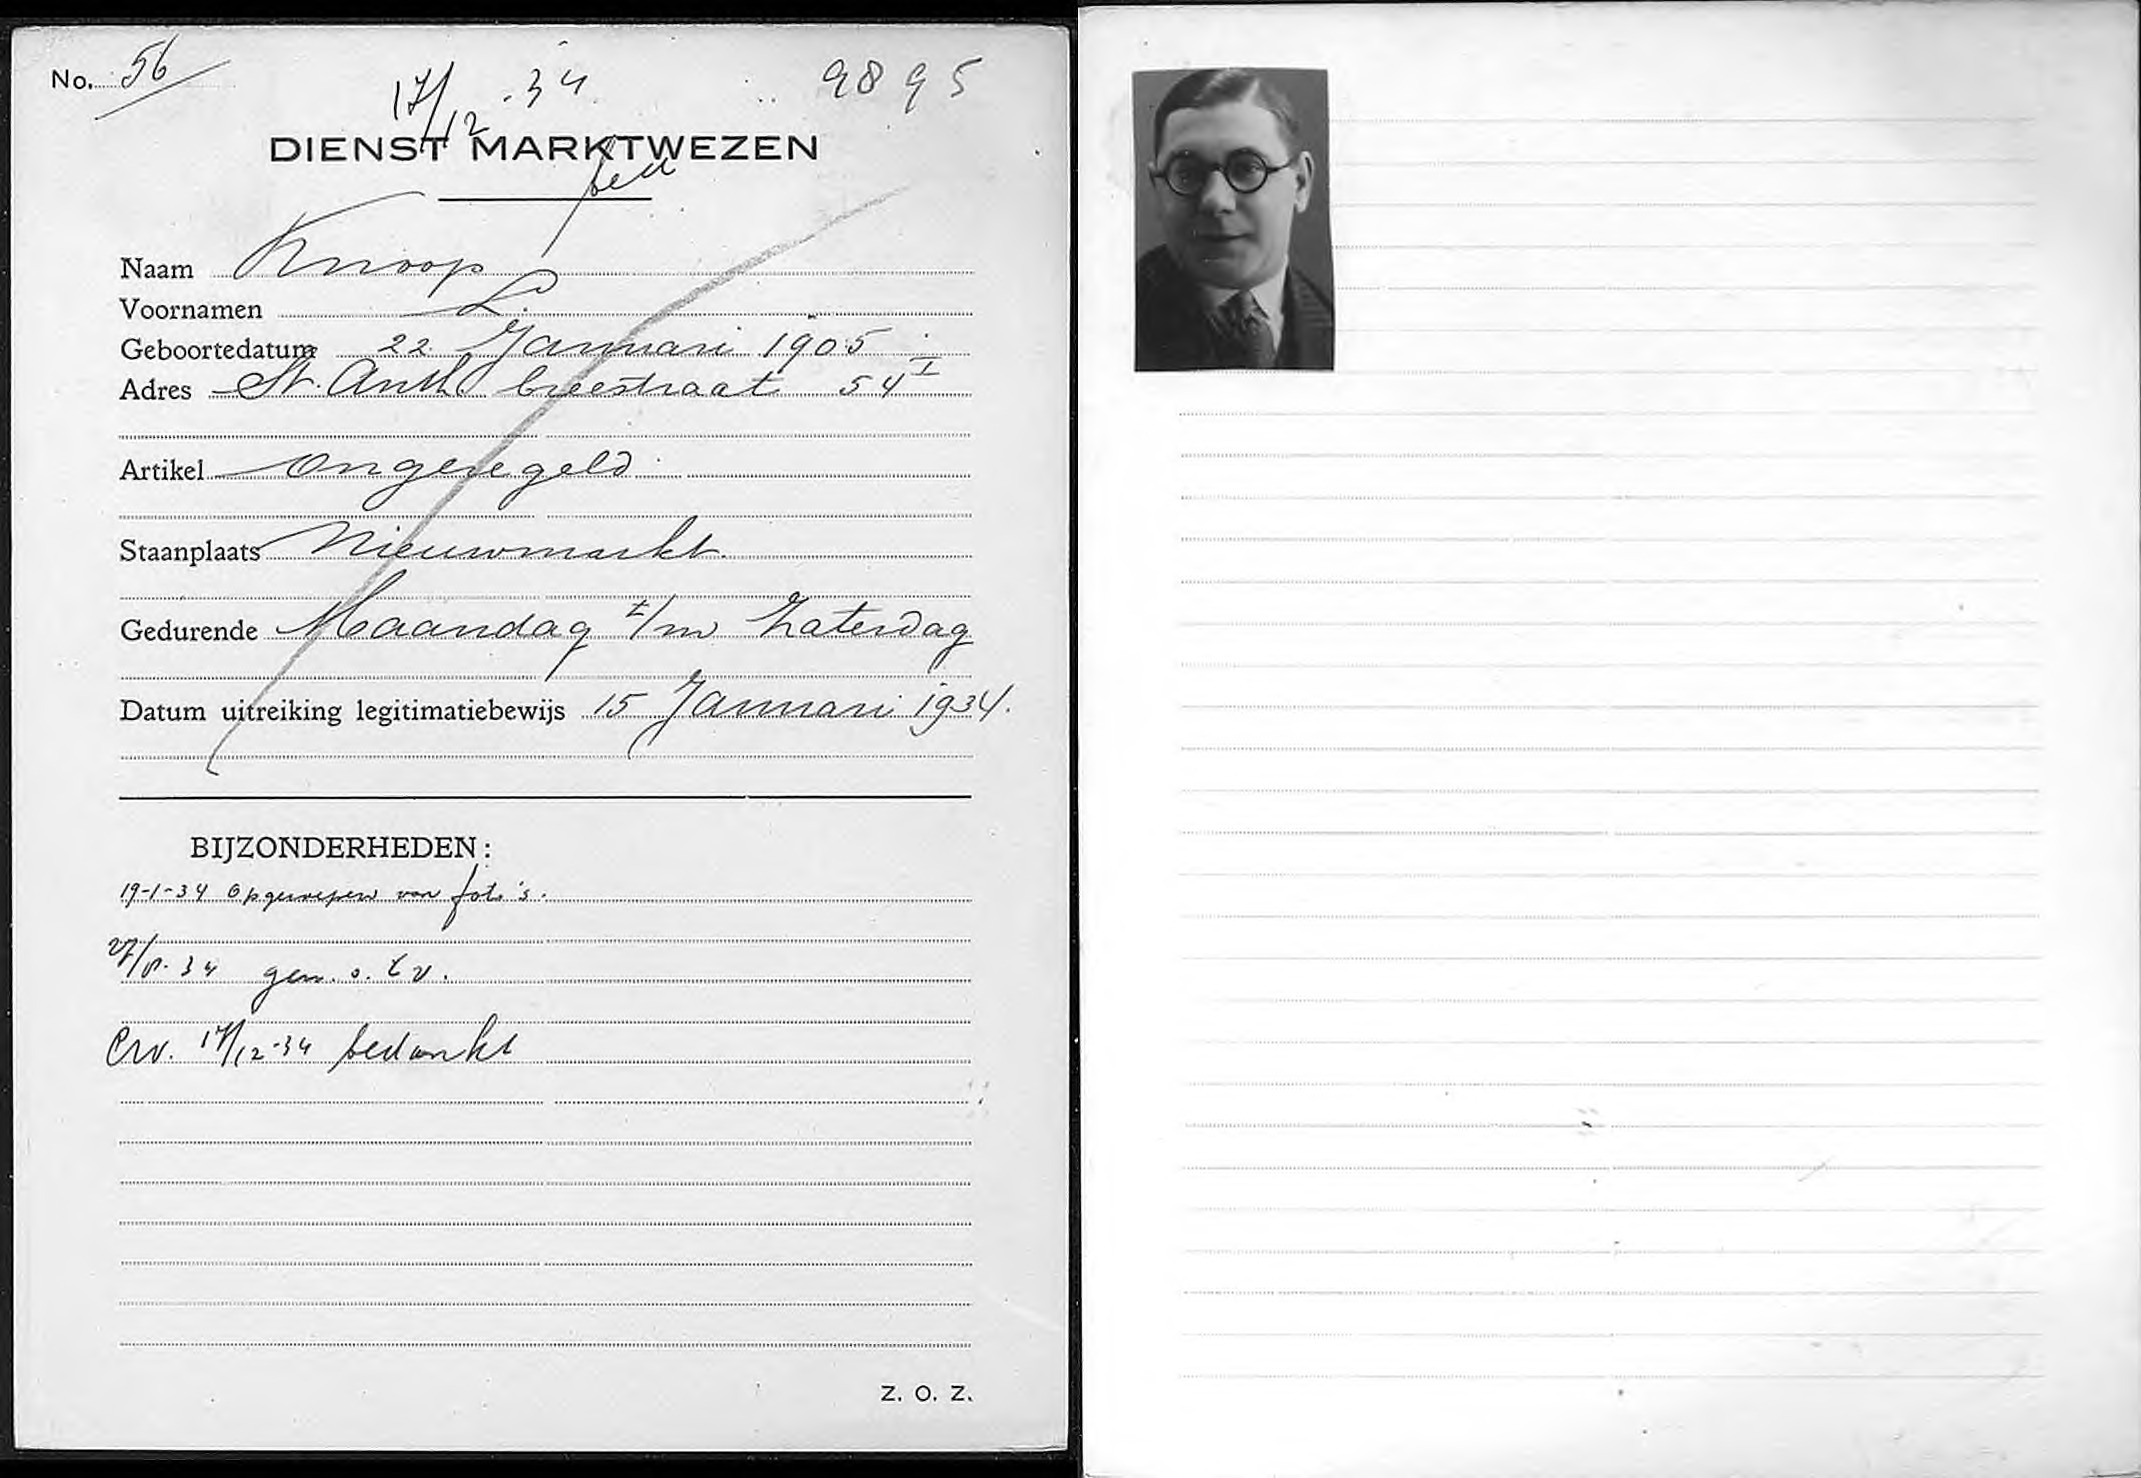 No. 56
17/12-34
9895
DIENST MARKTWEZEN
bed
Naam Knoop
Voornamen L.
Geboortedatum 22 Januari 1905
Adres St. Anth. breestraat 54 I
Artikel ongeregeld
Staanplaats Nieuwmarkt.
Gedurende Maandag t/m Zaterdag
Datum uitreiking legitimatiebewijs 15 Januari 1934.
BIJZONDERHEDEN:
19-1-34 Opgeroepen voor foto's.
34 gem. o. t. v.
17/12-34 bedankt
Z. O. Z.